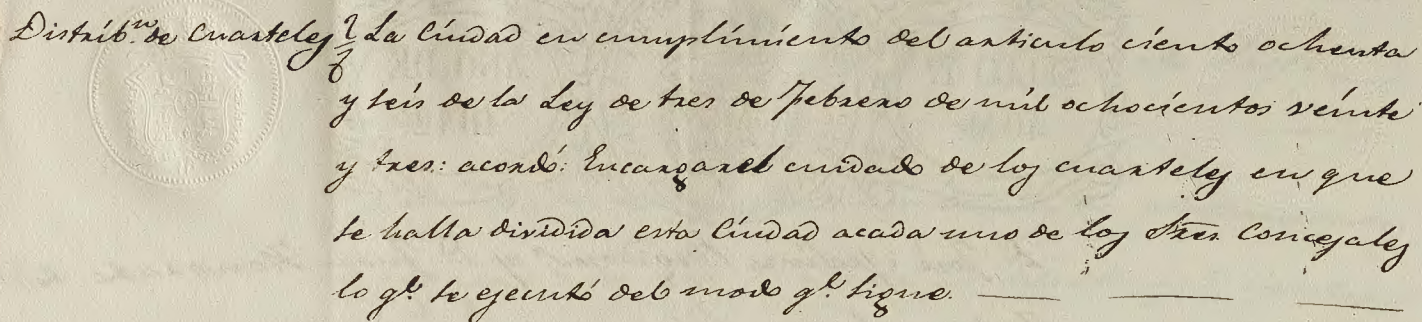 Distrib.n de Cuarteles La Ciudad en cumplimiento del articulo ciento ochenta
y seis de la Ley de tres de Febrero de mil ochocientos veinte
y tres: acordó: Encargar el cuidado de los cuarteles en que
se halla dividida esta Ciudad acada uno de los Sres. Concejales
lo ql. se ejecutó del modo qe. sigue.